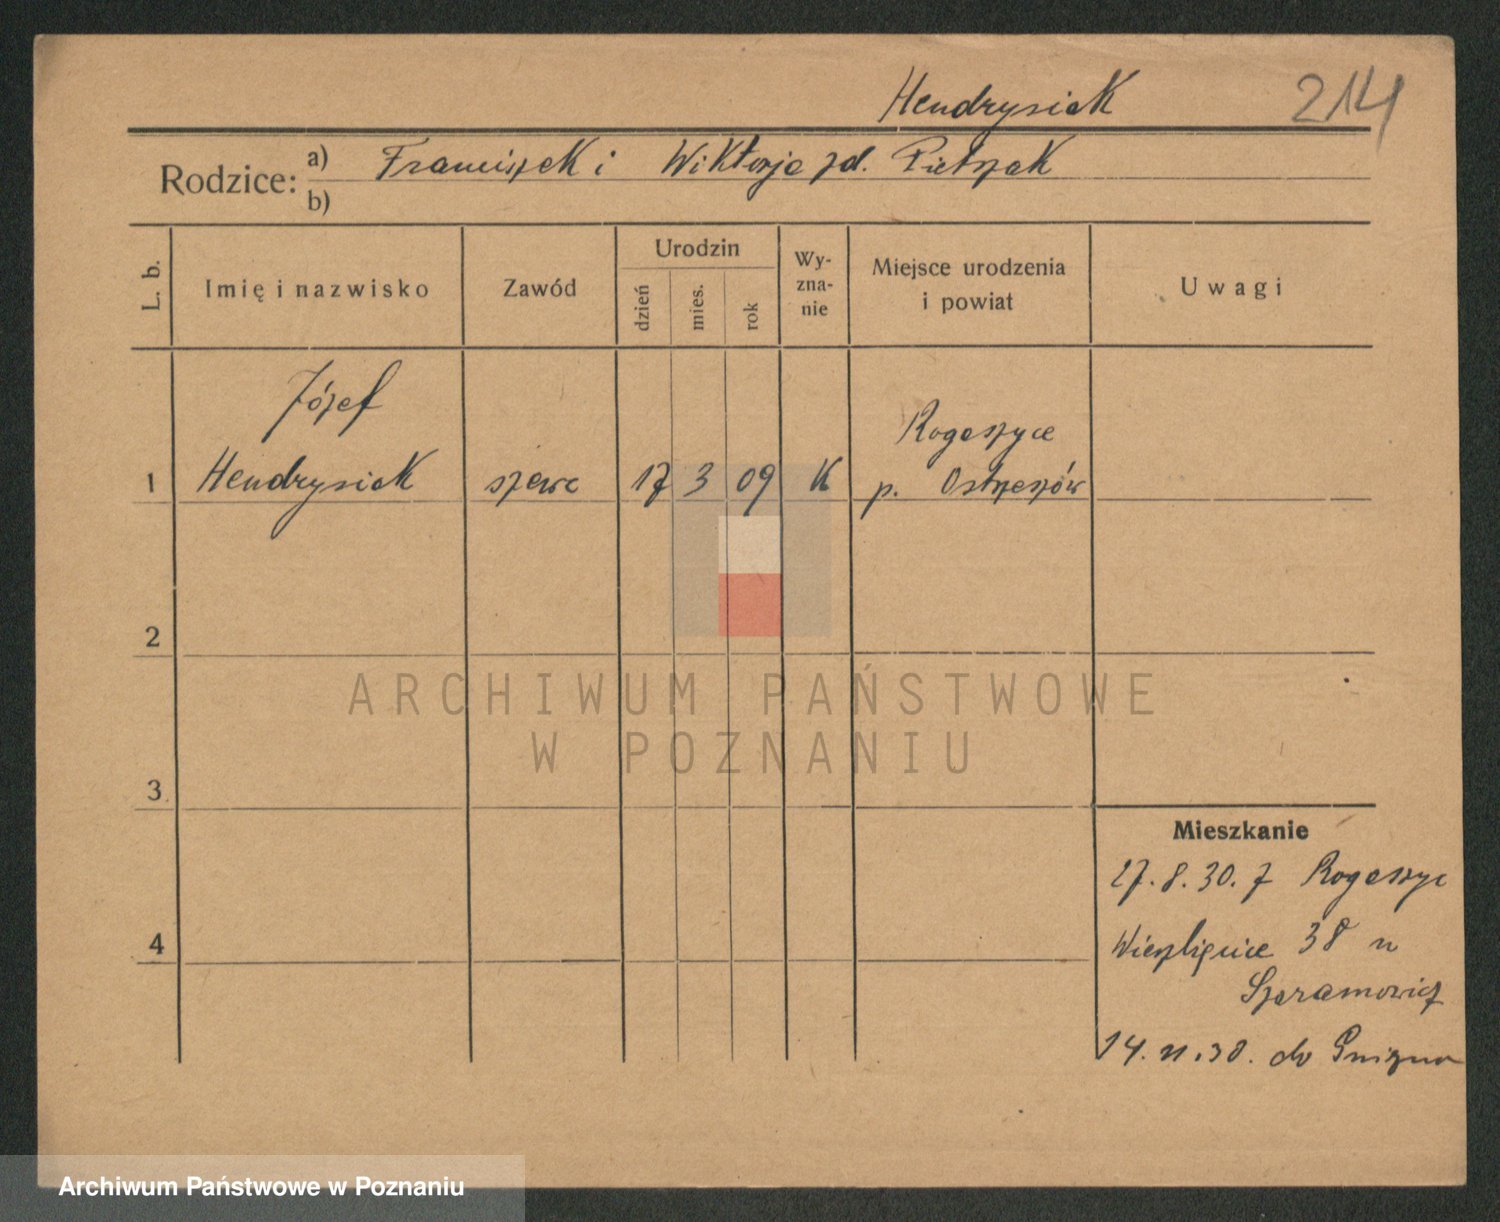 Hendrysiak 214
Rodzice: a) Franciszek i Wiktorja zd. Pietrzak
b)
L. b. Imię i nazwisko Zawód Urodzin dzień mies. rok Wy-zna-nie Miejsce urodzenia i powiat Uwagi
Józef Rogaszyce
1 Hendrysiak szewc 17 3 09 K p. Ostrzeszów
2
ARCHIWUM PAŃSTWOWE
W POZNANIU
3
Mieszkanie
27.8.30. z Rogaszyc
4 38 u
14.11.30. do Gniezna
Archiwum Państwowe w Poznaniu